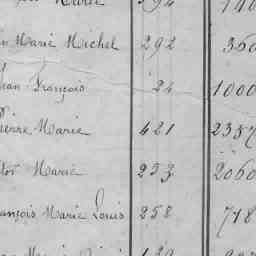 Marie 394 140
Marie Michel 292 360
Jean François 24 1000
Pierre Marie 421 2387
Marie 253 2060
François Marie Louis 258 718